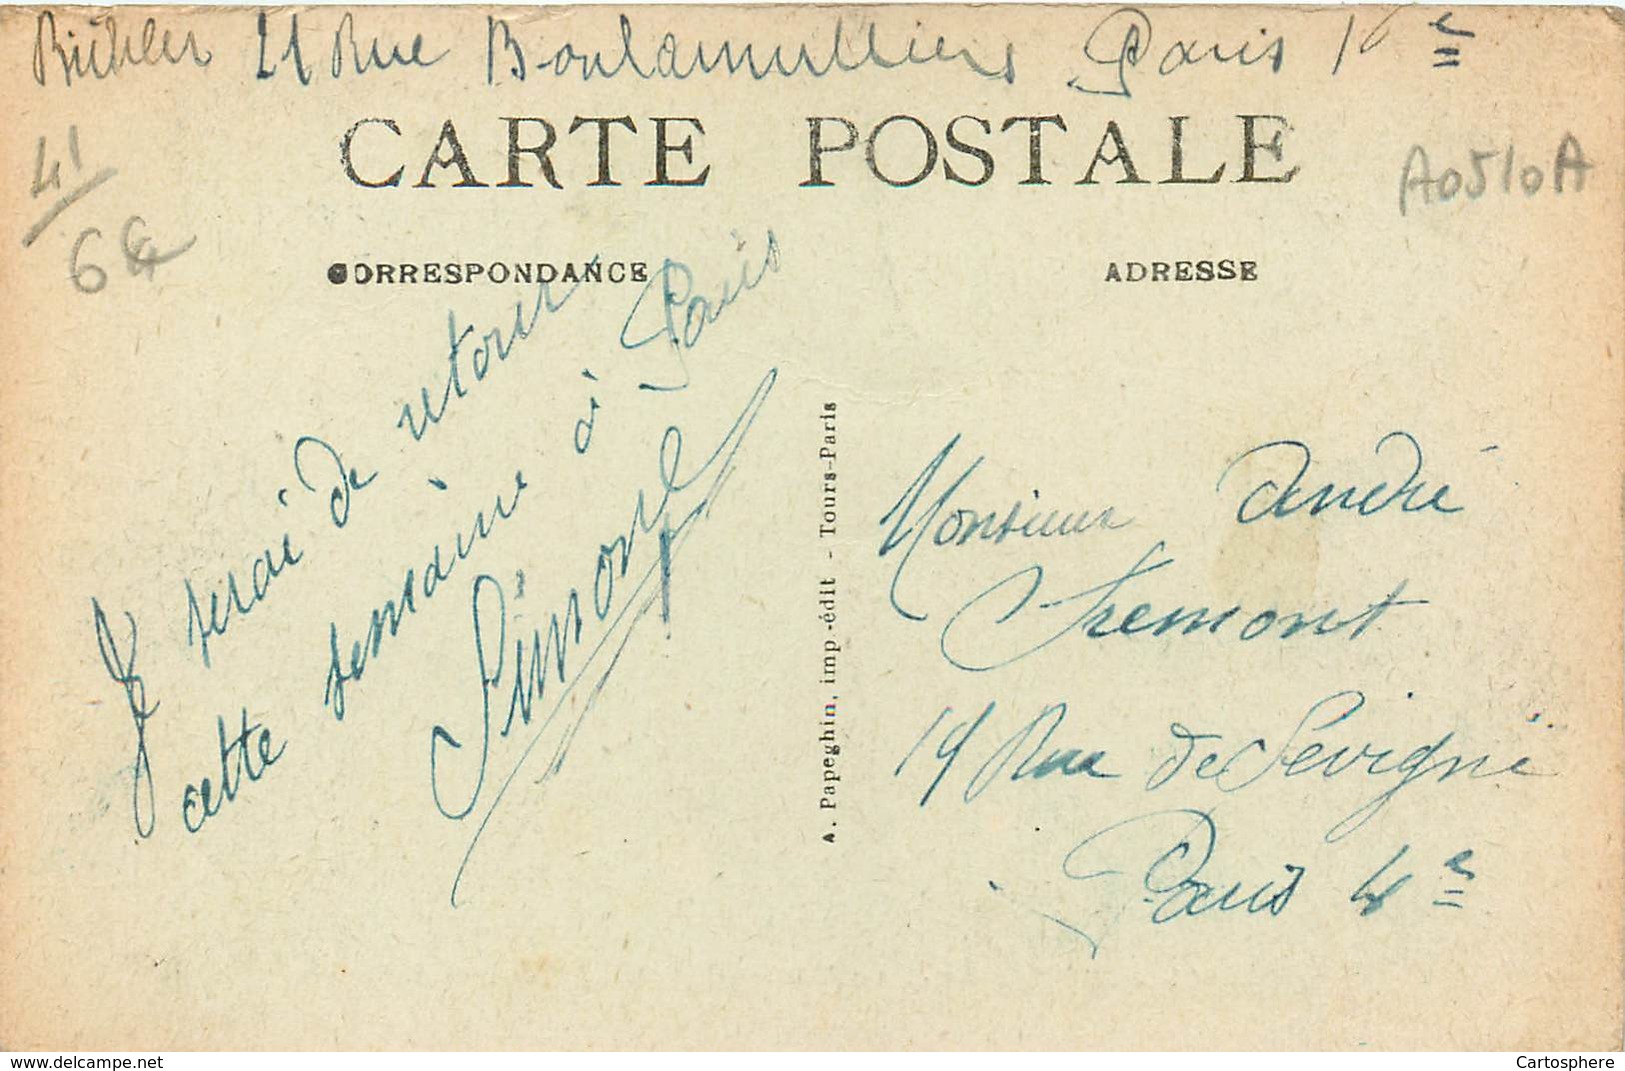 Bühler 21 Rue Boulainvilliers Paris 16e
CARTE POSTALE
41
6€
A0510A
CORRESPONDANCE
ADRESSE
Je serai de retour
cette semaine à Paris
Simone
A. Papeghin, imp-édit - Tours-Paris
Monsieur André
Fremont
19 Rue de Sévigné
Paris 4e
www.delcampe.net
Cartosphere